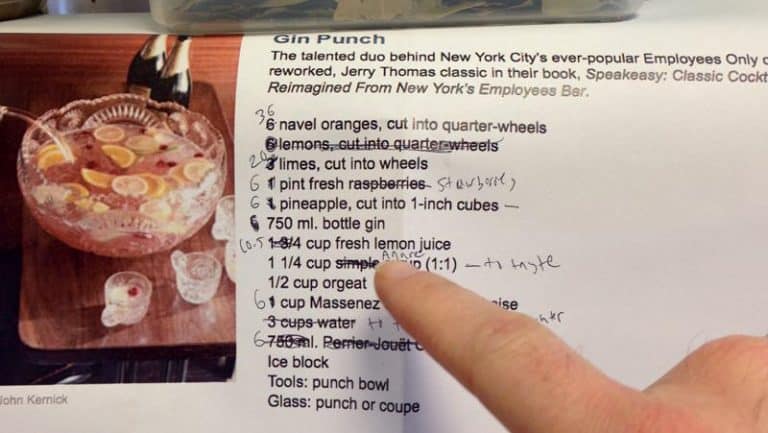 Gin Punch
The talented duo behind New York City's ever-popular Employees Only
reworked, Jerry Thomas classic in their book, Speakeasy: Classic Cockt
Reimagined From New York's Employees Bar.
36
6 navel oranges, cut into quarter-wheels
6 lemons, cut into quarter-wheels
3 limes, cut into wheels
6 1 pint fresh raspberries strawberry
6 1 pineapple, cut into 1-inch cubes —
6 750 ml. bottle gin
10.5 1-3/4 cup fresh lemon juice
1 1/4 cup simple (1:1) – to taste
1/2 cup orgeat
6 1 cup Massenez
3 cups water to
6 750 ml. Perrier-Jouët
Ice block
Tools: punch bowl
Glass: punch or coupe
John Kernick